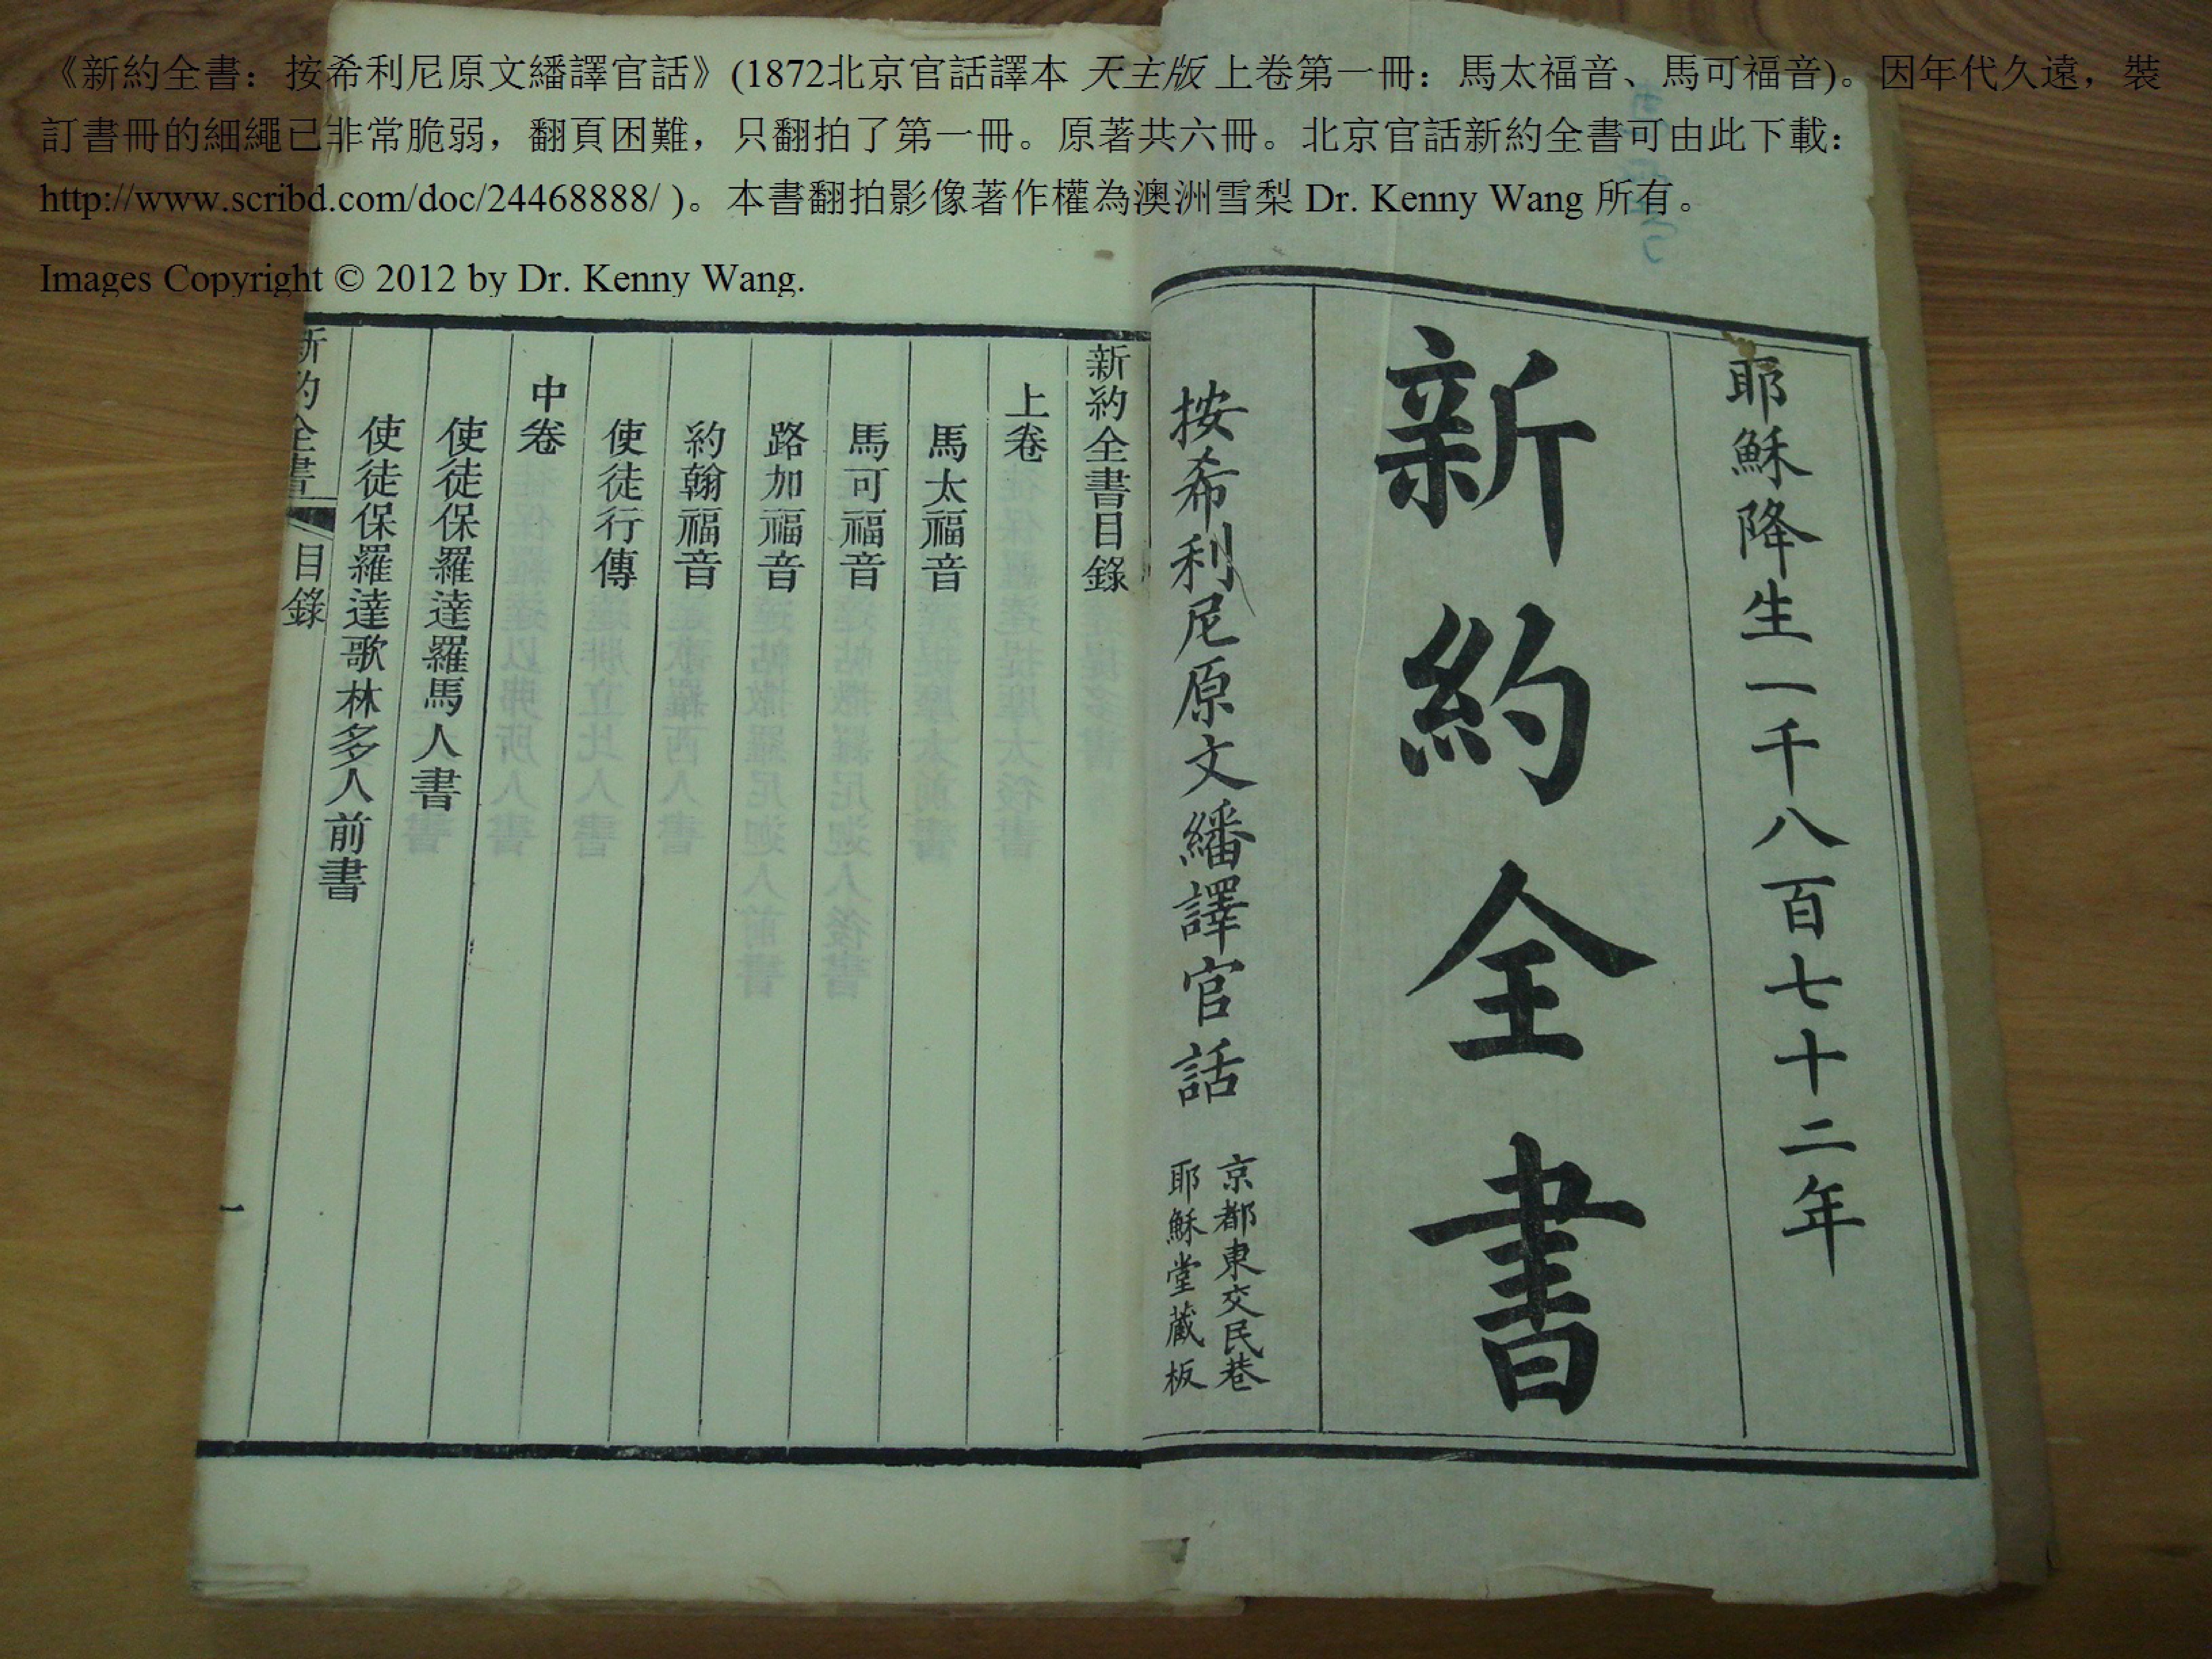 《新約全書：按希利尼原文繙譯官話》(1872北京官話譯本 天主版 上卷第一冊：馬太福音、馬可福音)。因年代久遠，裝
訂書冊的細繩已非常脆弱，翻頁困難，只翻拍了第一冊。原著共六冊。北京官話新約全書可由此下載：
http://www.scribd.com/doc/24468888/ )。本書翻拍影像著作權為澳洲雪梨 Dr. Kenny Wang 所有。
Images Copyright © 2012 by Dr. Kenny Wang.
耶穌降生一千八百七十二年
新約全書
按希利尼原文繙譯官話
京都東交民巷
耶穌堂藏板
新約全書目錄
上卷
馬太福音
馬可福音
路加福音
約翰福音
使徒行傳
中卷
使徒保羅達羅馬人書
使徒保羅達歌林多人前書
新約全書
目錄
一